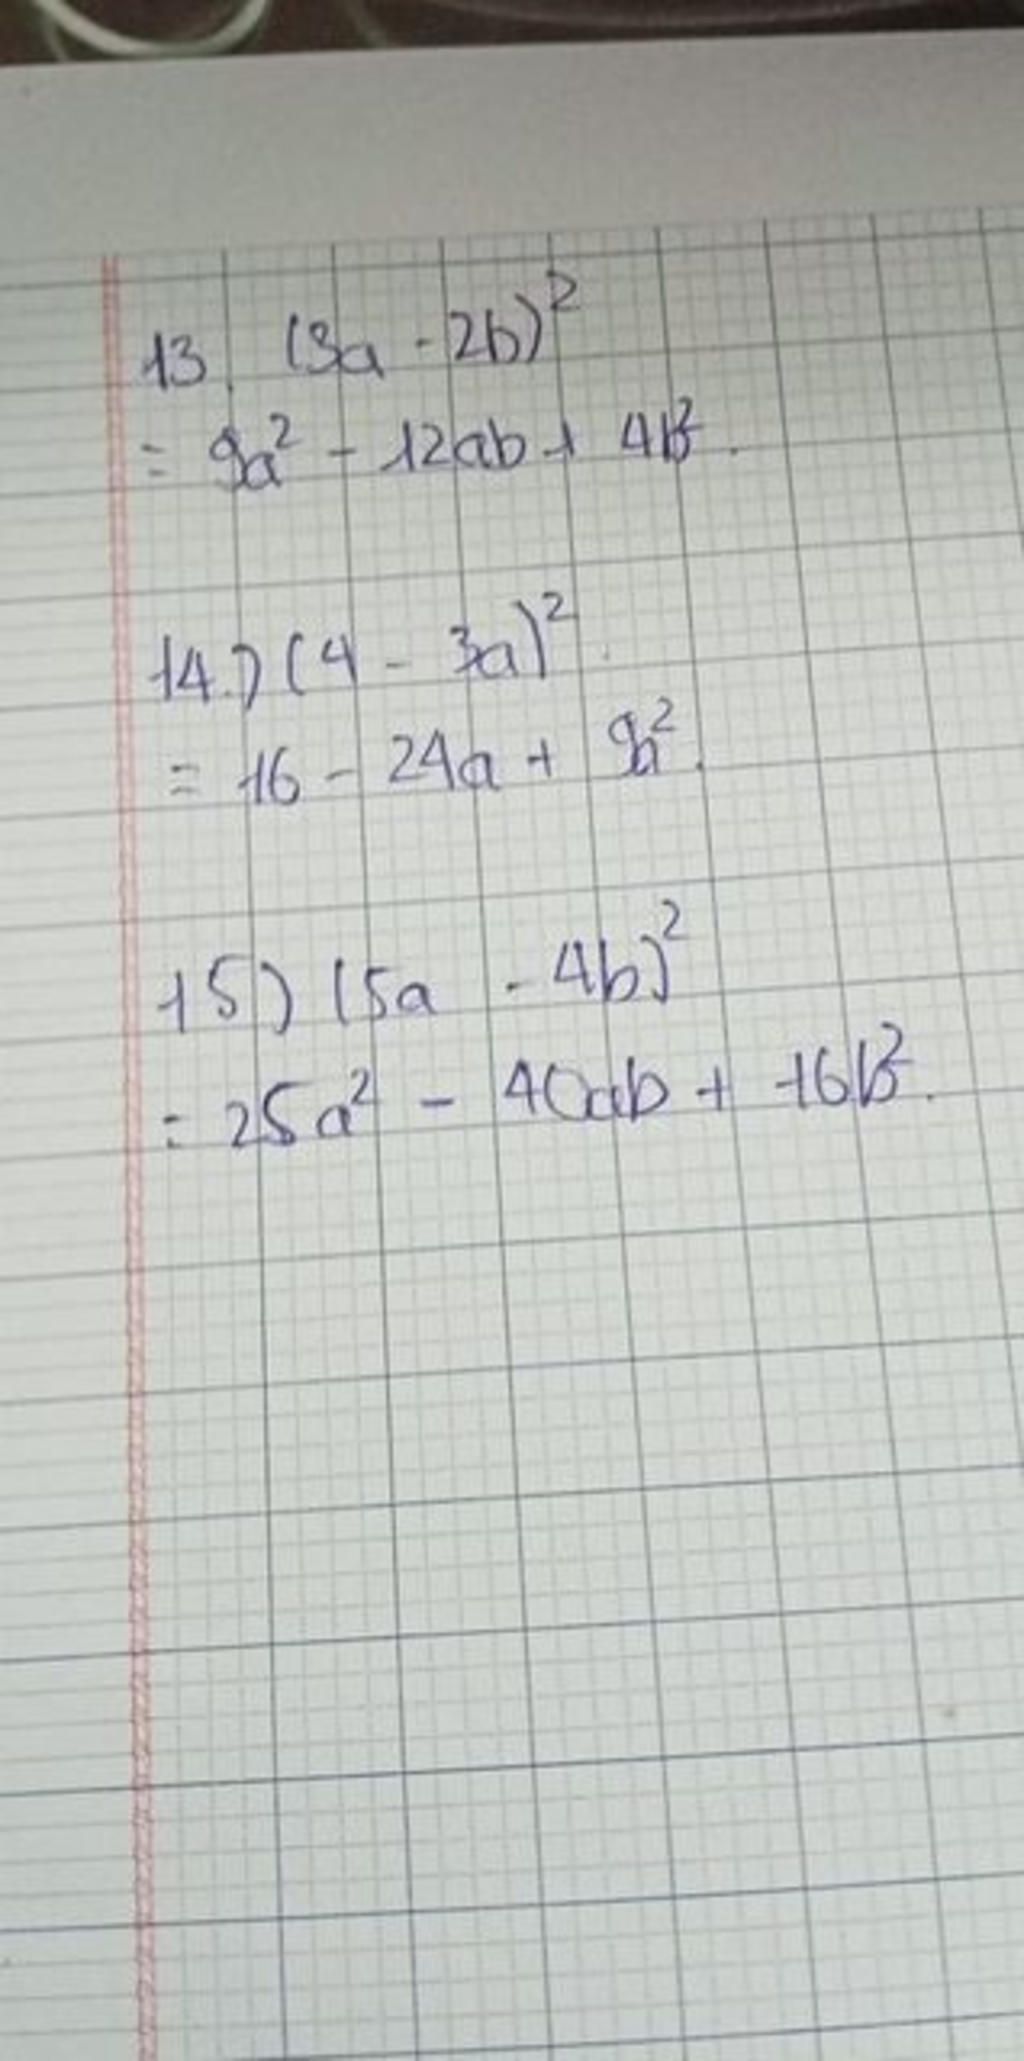 13, (3a - 2b)²
= 9a² - 12ab + 4b².
14.) (4 - 3a)².
= 16 - 24a + 9a².
15) (5a - 4b)²
= 25a² - 40ab + 16b².